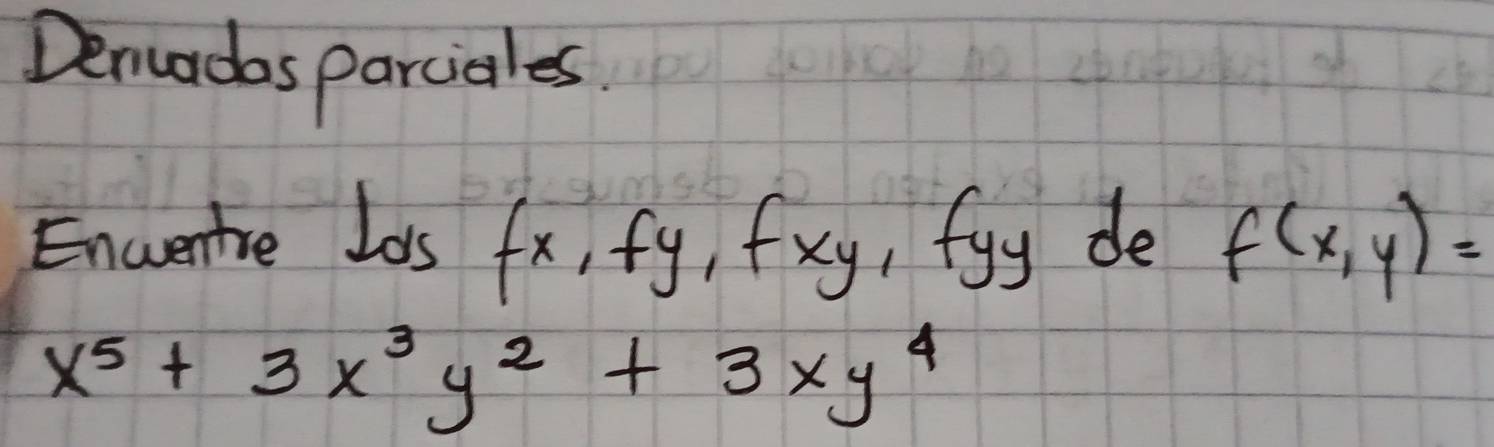 Derivadas parciales.
Encuentre las fx, fy, fxy, fyy de f(x,y)=
x⁵ + 3x³y² + 3xy⁴